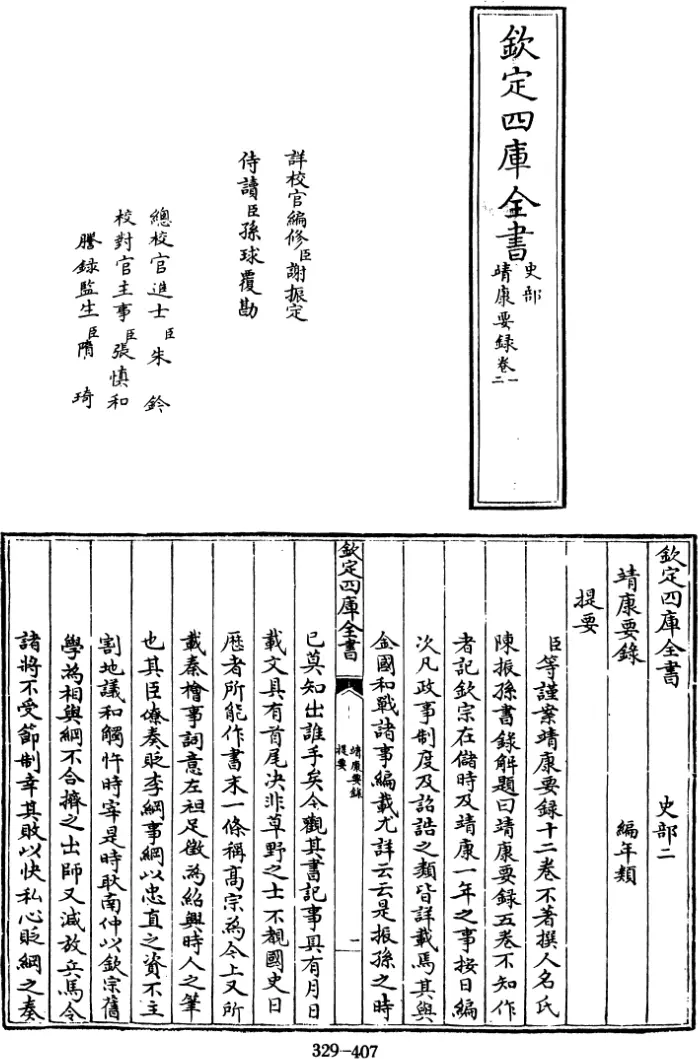 欽定四庫全書
史部
靖康要録卷一
二
詳校官編修臣謝振定
侍讀臣孫球覆勘
總校官進士臣朱鈐
校對官主事臣張慎和
謄録監生臣隋琦
欽定四庫全書 史部二
靖康要錄 編年類
提要
臣等謹案靖康要録十二卷不著撰人名氏
陳振孫書録解題曰靖康要録五卷不知作
者記欽宗在儲時及靖康一年之事按日編
次凡政事制度及詔誥之類皆詳載焉其與
金國和戰諸事編載尤詳云云是振孫之時
欽定四庫全書
靖康要錄
提要
一
已莫知出誰手矣今觀其書記事具有月日
載文具有首尾決非草野之士不覩國史日
厯者所能作書末一條稱髙宗為今上又所
載秦檜事詞意左袒足徵為紹興時人之筆
也其臣僚奏貶李綱事綱以忠直之資不主
割地議和觸忤時宰是時耿南仲以欽宗舊
學為相與綱不合擠之出師又減放兵馬令
諸將不受節制幸其敗以快私心貶綱之奏
329-407